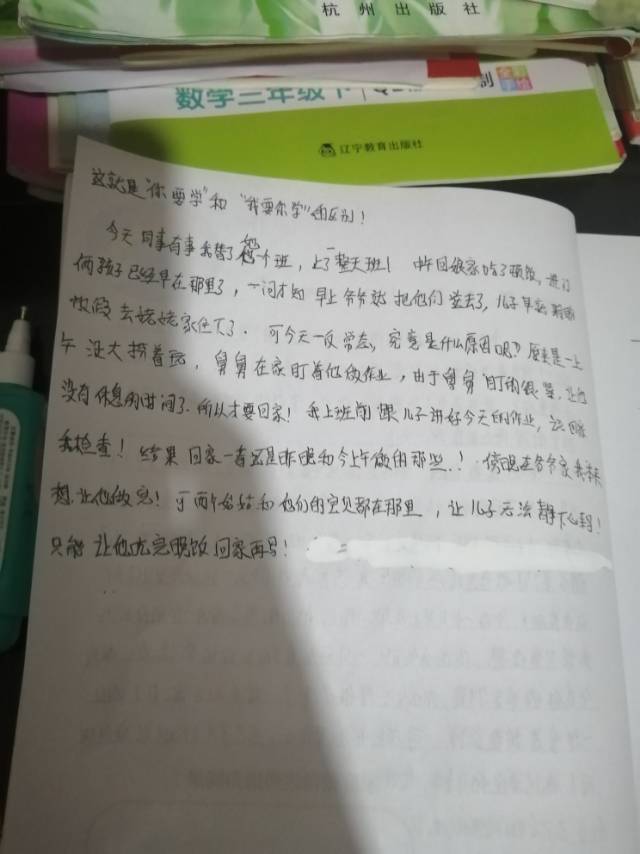 杭州出版社
数学三年级下
制
辽宁教育出版社
这就是"你要学"和"我要你学"的区别!
今天同事有事我替了她一个班,上了一整天班! 中午回娘家吃了顿饭,进门
俩孩子已经早在那里了,一问才知早上爷爷就把他们送去了,儿子早
放假去姥姥家住下了. 可今天一反常态,究竟是什么原因呢?原来是一上
午没大捞着玩,舅舅在家盯着他做作业,由于舅舅盯的很紧,让他
没有休息的时间了.所以才要回家! 我上班间跟儿子讲好今天的作业,说回来
我检查! 结果回家一看还是昨晚和今上午做的那些.! 傍晚在爷爷家我本
想让他做完! 可两个姑姑和他们的宝贝都在那里,让儿子无法静下心到!
只能让他吃完晚饭回家再写!